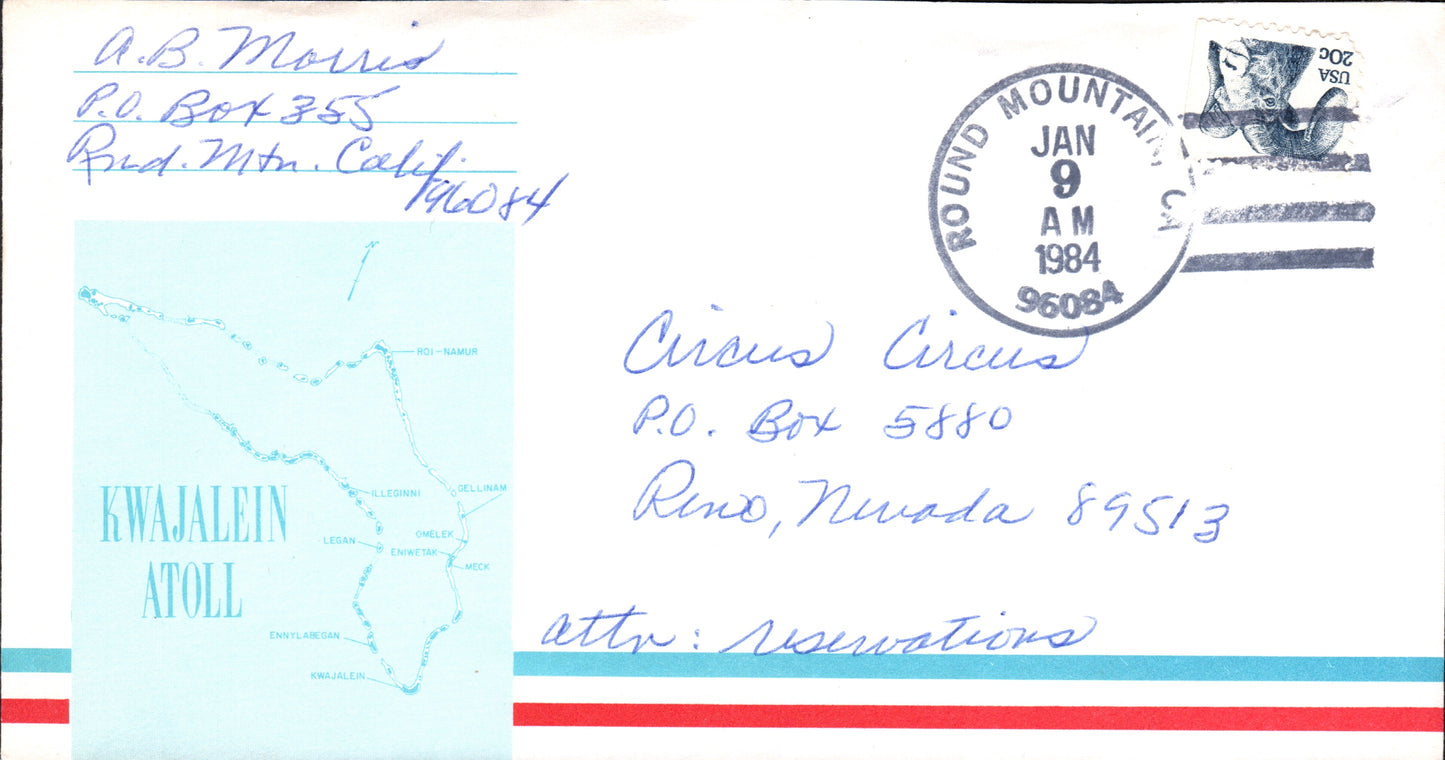 A.B. Morris
P.O. Box 355
Rnd. Mtn. Calif.
96084
USA
20c
ROUND MOUNTAIN, CA
JAN
9
AM
1984
96084
Circus Circus
P.O. Box 5880
Reno, Nevada 89513
attn: reservations
N
ROI-NAMUR
ILLEGINNI
GELLINAM
OMELEK
LEGAN
ENIWETAK
MECK
KWAJALEIN
ATOLL
ENNYLABEGAN
KWAJALEIN